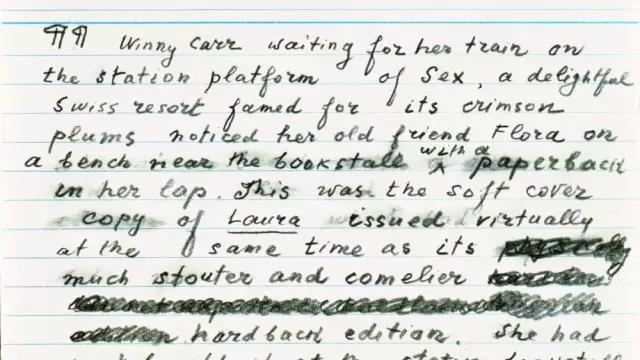 ¶¶ Winny Carr waiting for her train on
the station platform of Sex, a delightful
Swiss resort famed for its crimson
plums noticed her old friend Flora on
a bench near the bookstall with a paperback
in her lap. This was the soft cover
copy of Laura issued virtually
at the same time as its
much stouter and comelier
hardback edition. She had